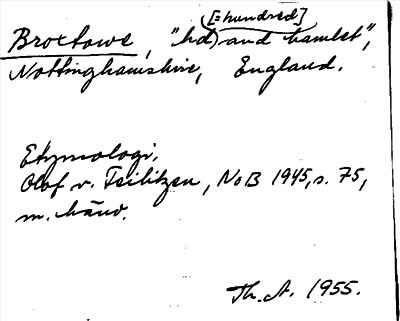 [=hundred]
Broxtowe, "hd) and hamlet",
Nottinghamshire, England.
Etymologi.
Olof v. Feilitzen, NoB 1945, s. 75,
m. hänv.
Th. A. 1955.